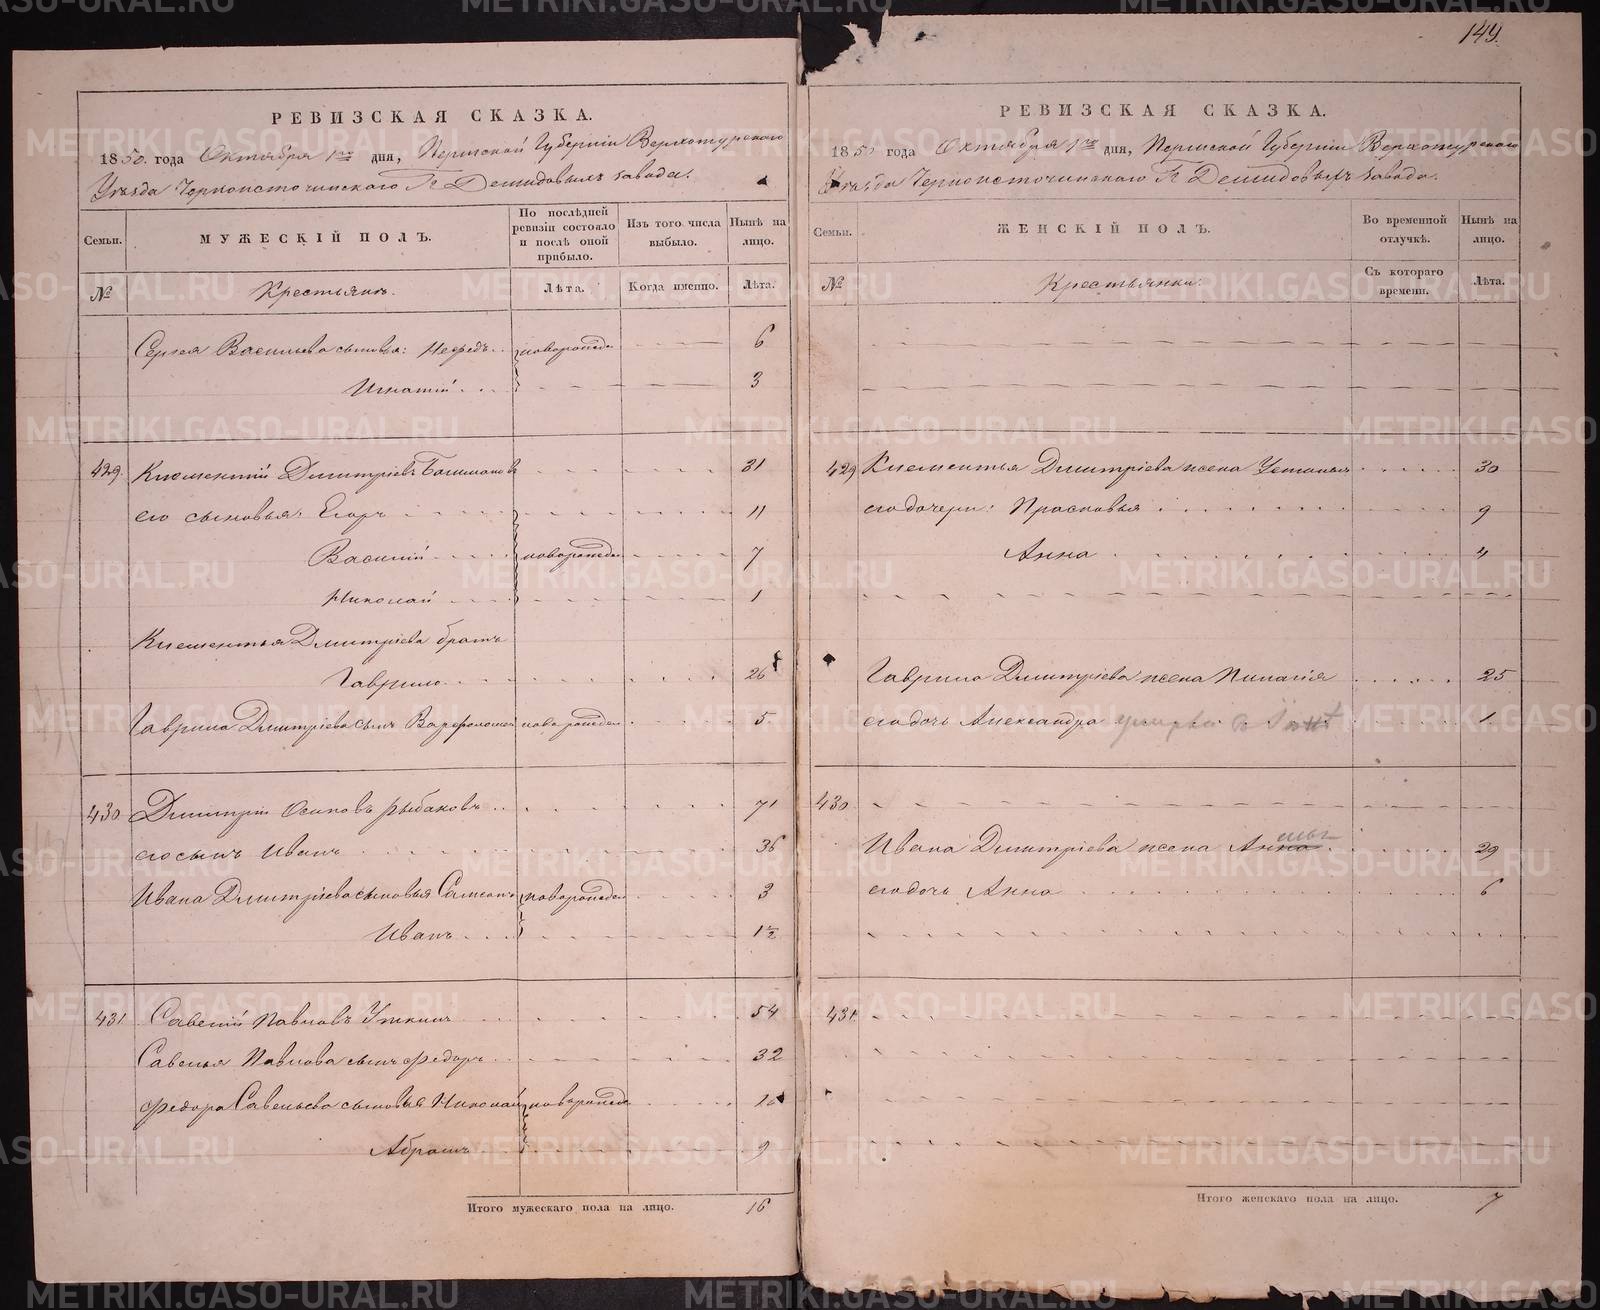 149.
РЕВИЗСКАЯ СКАЗКА.
1850 года Октября 1го дня, Пермской Губерніи Верхотурскаго
Уѣзда Черноисточинскаго Гг Демидовыхъ завода.
Семьи. МУЖЕСКІЙ ПОЛЪ. По послѣдней ревизіи состояло и послѣ оной прибыло. Изъ того числа выбыло. Нынѣ на лицо.
№ Крестьянъ. Лѣта. Когда именно. Лѣта.
Сергея Васильева сыновья: Нефедъ новорожден 6
Игнатій 3
429. Клементій Дмитріевъ 31
его сыновья: Егоръ 11
Василій новорожден 7
Николай 1
Клементья Дмитріева братъ
Гаврило 26
Гаврила Дмитріева сынъ Варфоломей новорожден 5
430 Дмитрій Осиповъ Рыбаковъ 71
его сынъ Иванъ 36
Ивана Дмитріева сыновья Самсонъ новорожден 3
Иванъ 1½
431 Савелій Павловъ Уткинъ 54
Савелья Павлова сынъ Федоръ 32
Федора Савельева сыновья Николай новорожден
Абрамъ 9
Итого мужескаго пола на лицо. 16
РЕВИЗСКАЯ СКАЗКА.
1850 года Октября 1го дня, Пермской Губерніи Верхотурскаго
Уѣзда Черноисточинскаго Гг Демидовыхъ завода.
Семьи. ЖЕНСКІЙ ПОЛЪ. Во временной отлучкѣ. Нынѣ на лицо.
№ Крестьянки. Съ котораго времени. Лѣта.
429 Клементья Дмитріева жена Устинья 30
его дочери: Прасковья 9
Анна 4
Гаврила Дмитріева жена Пилагія 25
его дочь Александра умерла в 1
430
Ивана Дмитріева жена Анна 29
его дочь Анна 6
431
Итого женскаго пола на лицо. 7
METRIKI.GASO-URAL.RU